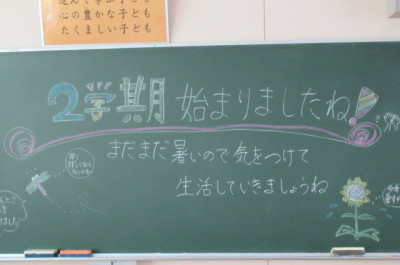 心の豊かな子ども
たくましい子ども
2学期 始まりましたね!
まだまだ暑いので気をつけて
生活していきましょうね